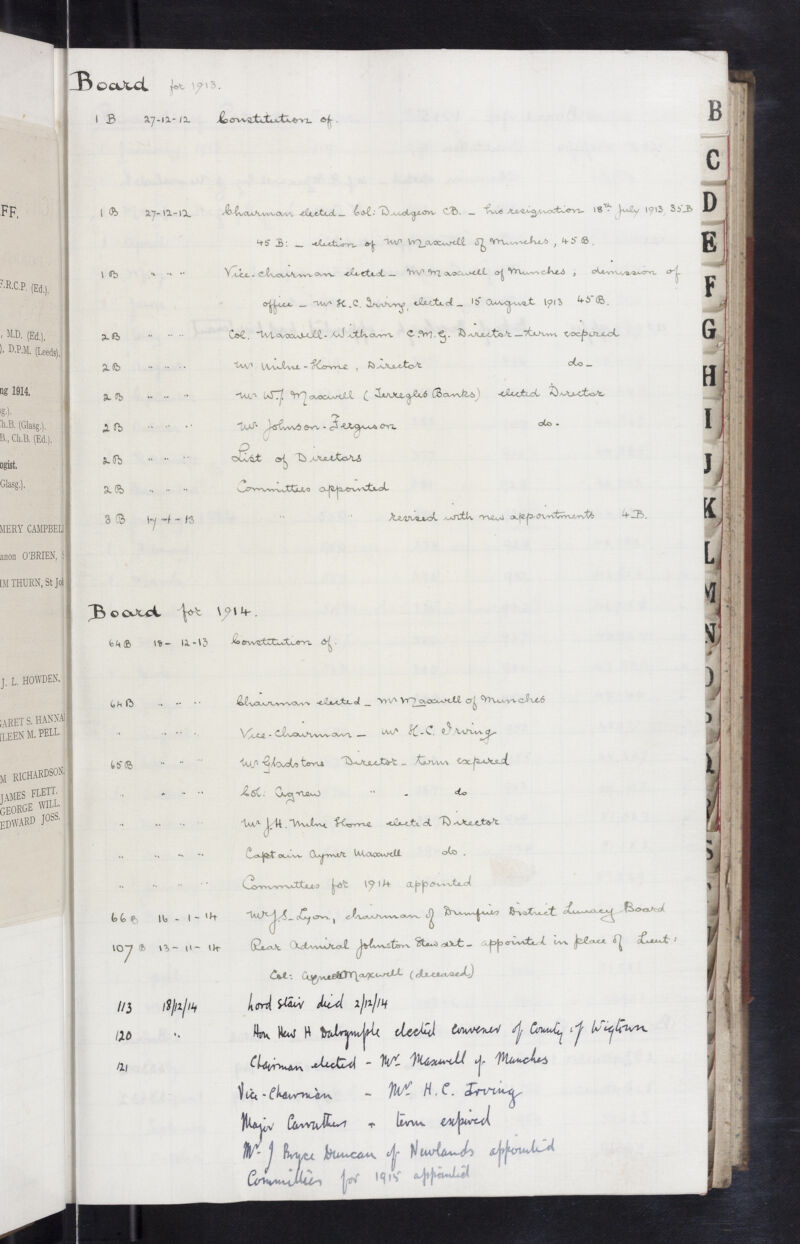 Board for 1913.
1 B 27-12-12 Constitution of.
1 B 27-12-12 Chairman elected - Col: Dudgeon CB. - his resignation 18th July 1913, 35B
45 B: - election of Mr Maxwell of Munches, 45 B.
1 B " " " Vice-chairman elected - Mr Maxwell of Munches; demission of
office - Mr H.C. Irving, elected - 15 August 1913 45 B.
2 B " " " Col. Maxwell-Witham C.M.G. Director - term expired
2 B " " " Mr Milne-Home, Director do -
2 B " " " Mr W.J. Maxwell (Terregles Banks) elected Director
2 B " " " Mr Johnson-Ferguson do -
2 B " " " List of Directors
2 B " " " Committees appointed
3 B 17-4-13 " " revised with new appointments 4 B.
Board for 1914.
64 B 18-12-13 Constitution of.
64 B " " " Chairman elected - Mr Maxwell of Munches
" " " " Vice-Chairman - Mr H.C. Irving
65 B " " " Mr Gladstone Director - term expired
" " " " Col: Agnew " - do
" " " " Mr J.H. Milne Home elected Director
" " " " Captain Aymer Maxwell do.
" " " " Committees for 1914 appointed
66 B 16-1-14 Mr J.S. Lyon, chairman of Dumfries District Lunacy Board
107 B 13-11-14 Rear Admiral Johnston Stewart - appointed in place of Lieut:
Col: Maxwell (deceased)
113 18/12/14 Lord Stair died 2/12/14
120 " Hon Hew H Dalrymple elected convener of County of Wigtown
121 Chairman elected - Mr. Maxwell of Munches
Vice-Chairman - Mr H.C. Irving
Major Carruthers - term expired
Mr J Bryce Duncan of Newlands appointed
Committees for 1915 appointed
FF.
F.R.C.P. (Ed.).
, M.D. (Ed.),
), D.P.M. (Leeds).
ng 1914.
g.).
h.B. (Glasg.).
B., Ch.B. (Ed.).
ogist.
Glasg.).
MERY CAMPBEL
anon O'BRIEN, S
IM THURN, St Jo
J. L. HOWDEN.
GARET S. HANNA
ILEEN M. PELL.
M RICHARDSON.
JAMES FLETT.
GEORGE WILL.
EDWARD JOSS.
B
C
D
E
F
G
H
I
J
K
L
M
N
O
P
Q
R
S